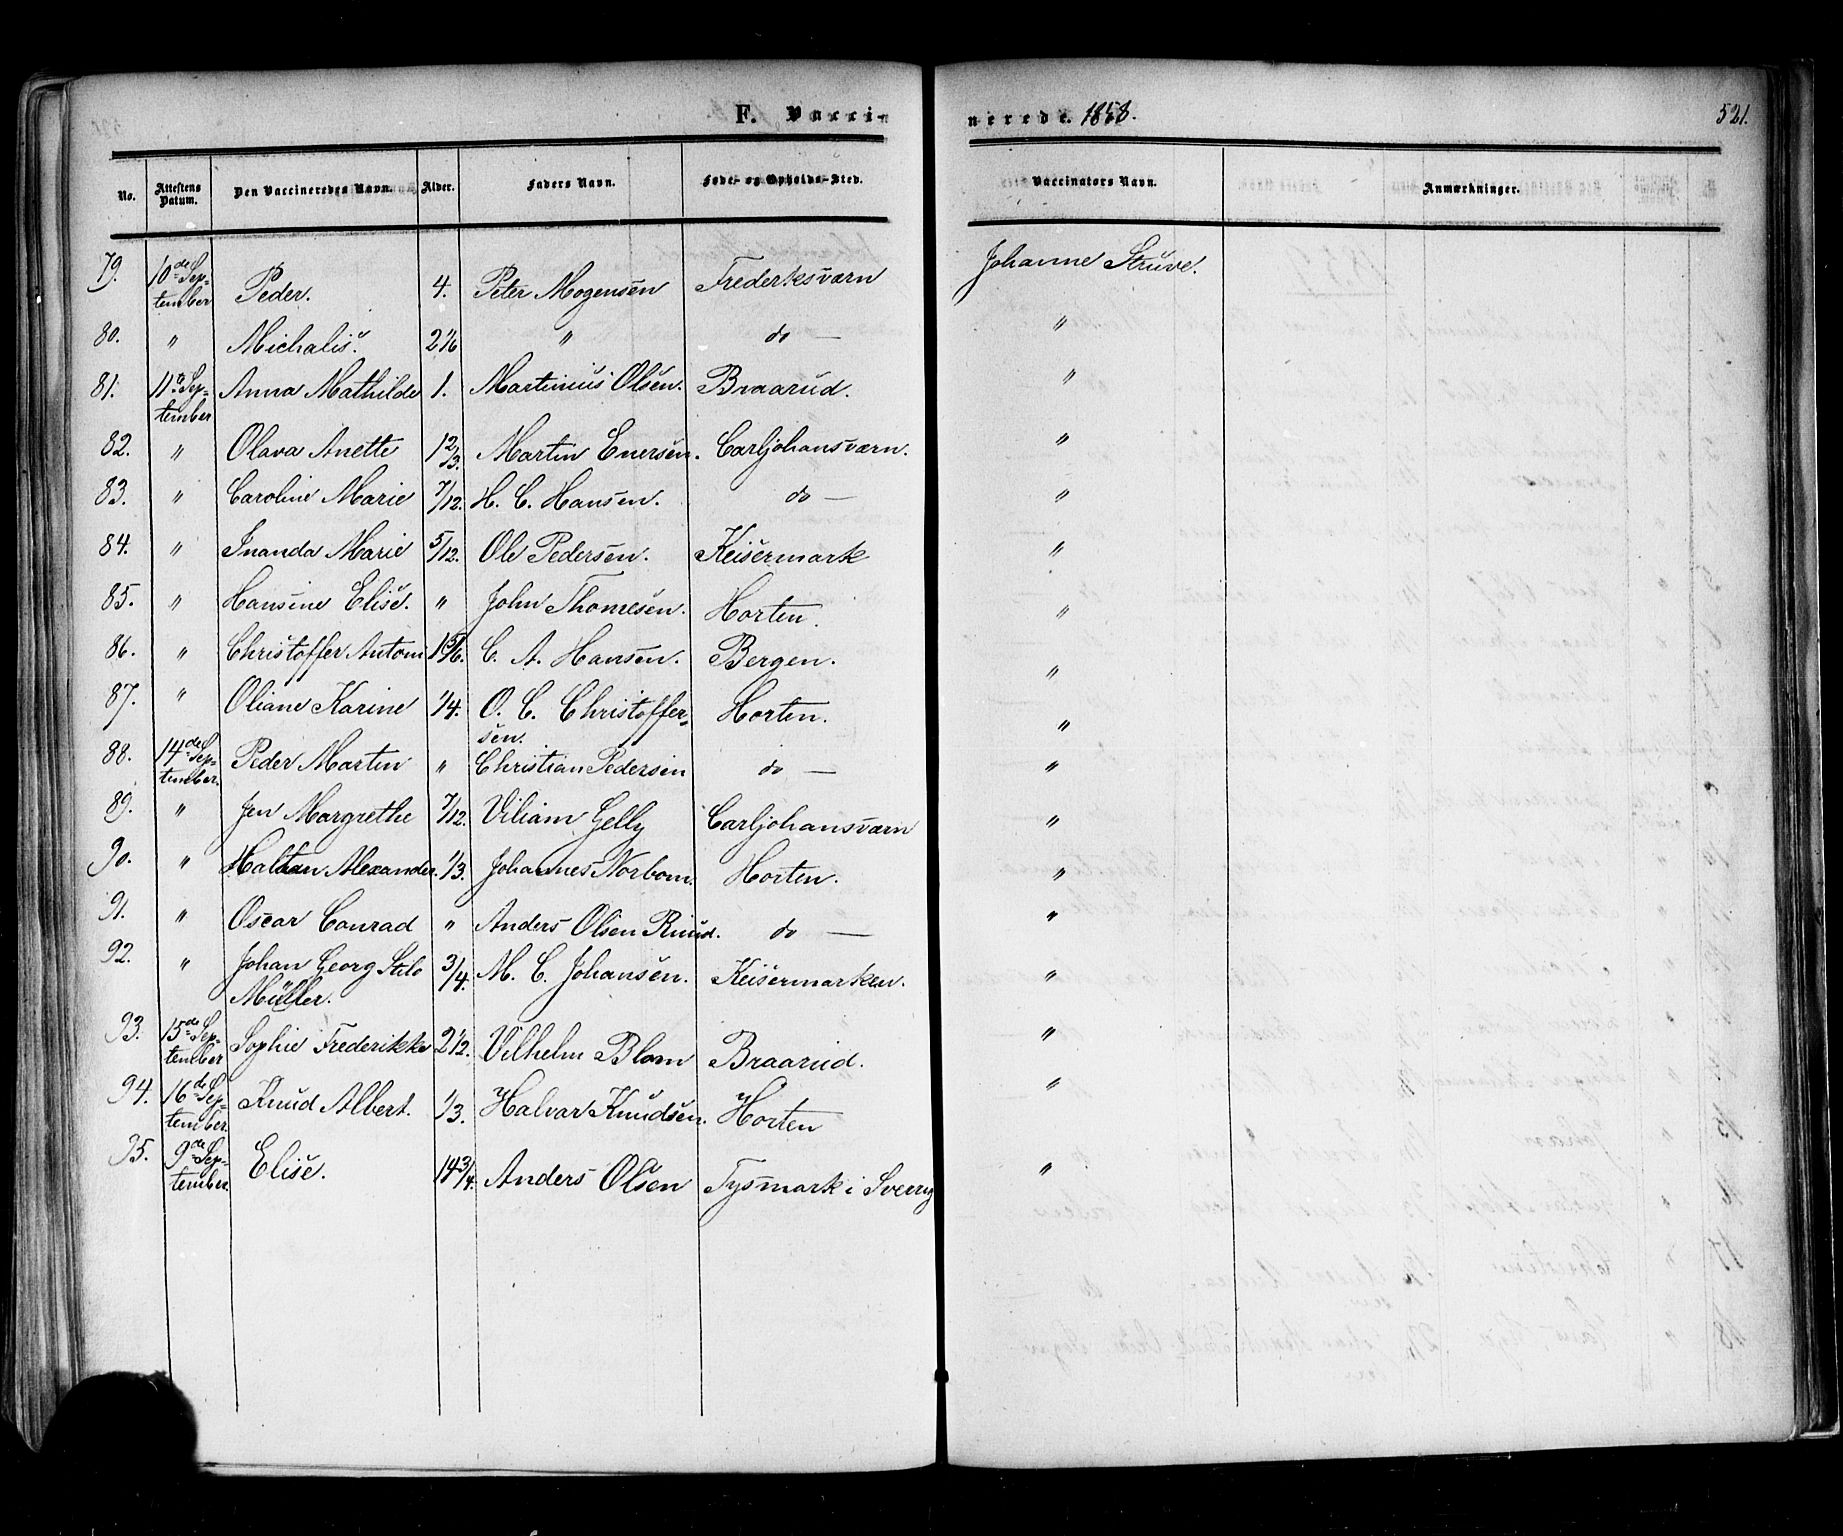 F. Vacci-
nerede. 1858. 521.
No. Attestens Datum. Den Vaccineredes Navn. Alder. Faders Navn. Føde- og Opholds-Sted. Vaccinators Navn. Anmærkninger.
79. 10de September Peder. 4. Peter Mogensen Frederksværn Johanne Strüve.
80. " Michališ. 2 1/6 " do — "
81. 11te September Anna Mathilde 1. Martinius Olsen. Braarud. "
82. " Olava Anette 1 2/3. Martin Enersen. Carljohansværn. "
83. " Caroline Marie 7/12. H. C. Hansen. do — "
84. " Inanda Marie 5/12. Ole Pedersen. Keisermark "
85. " Hansine Elise. " John Thomesen. Horten. "
86. " Christoffer Antom C. A. Hansen. Bergen. "
87. " Oliane Karine 1/4. O. C. Christoffer-
sen. Horten. "
88. 14de September. Peder Martin " Christian Pedersen do — "
89. " Jen Margrethe 7/12. Viliam Gelly Carljohansværn "
90. " Alexander. 1/3. Johannes Norbom. Horten. "
91. " Oscar Conrad " Anders Olsen Ruud. do — "
92. " Johan Georg Stilo
Müller. 3/4. M. C. Johansen. Keisermarken. "
93. 15de September Sophie Frederikke 2 1/2. Vilhelm Blom Braarud. "
94. 16de September. Knud Albert. 1/3. Halvar Knudsen. Horten "
95. 9de September. Elise. 14 3/4. Anders Olsen Tysmark i Sverrig "